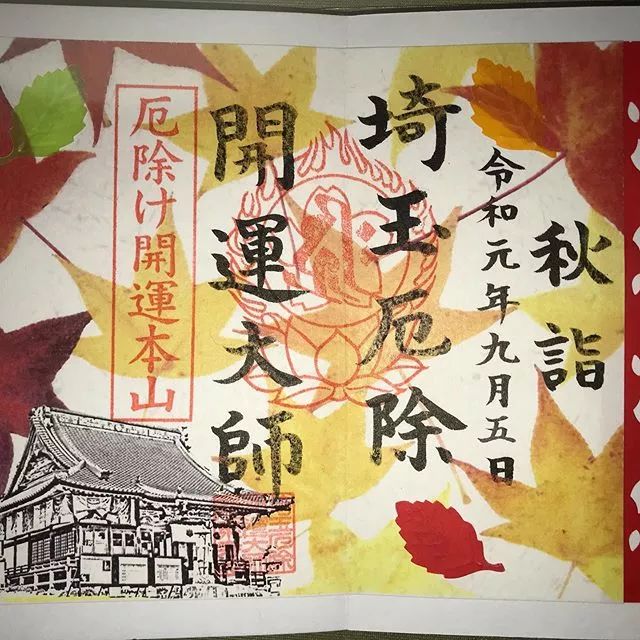 秋詣
令和元年九月五日
埼玉厄除
開運大師
厄除け開運本山